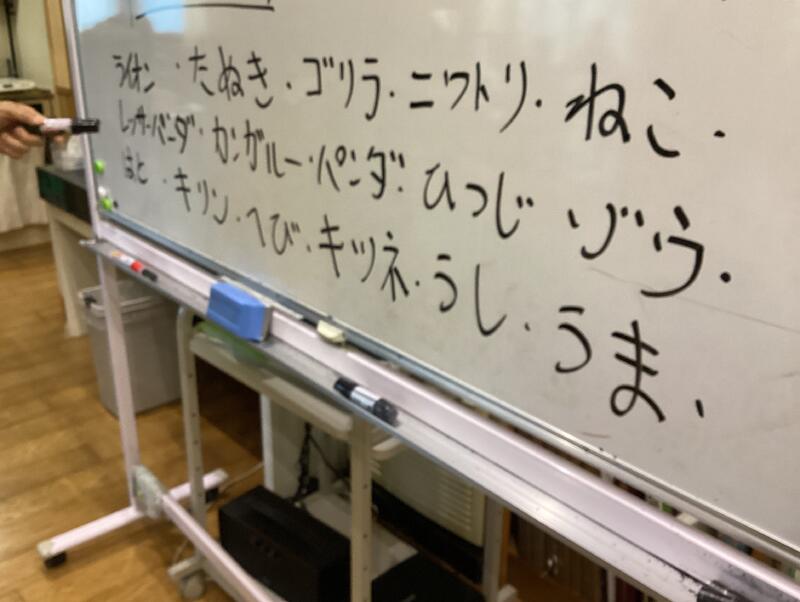 ライオン・たぬき・ゴリラ・ニワトリ・ねこ・
レッサーパンダ・カンガルー・パンダ・ひつじ ゾウ・
はと・キリン・へび・キツネ・うし・うま、